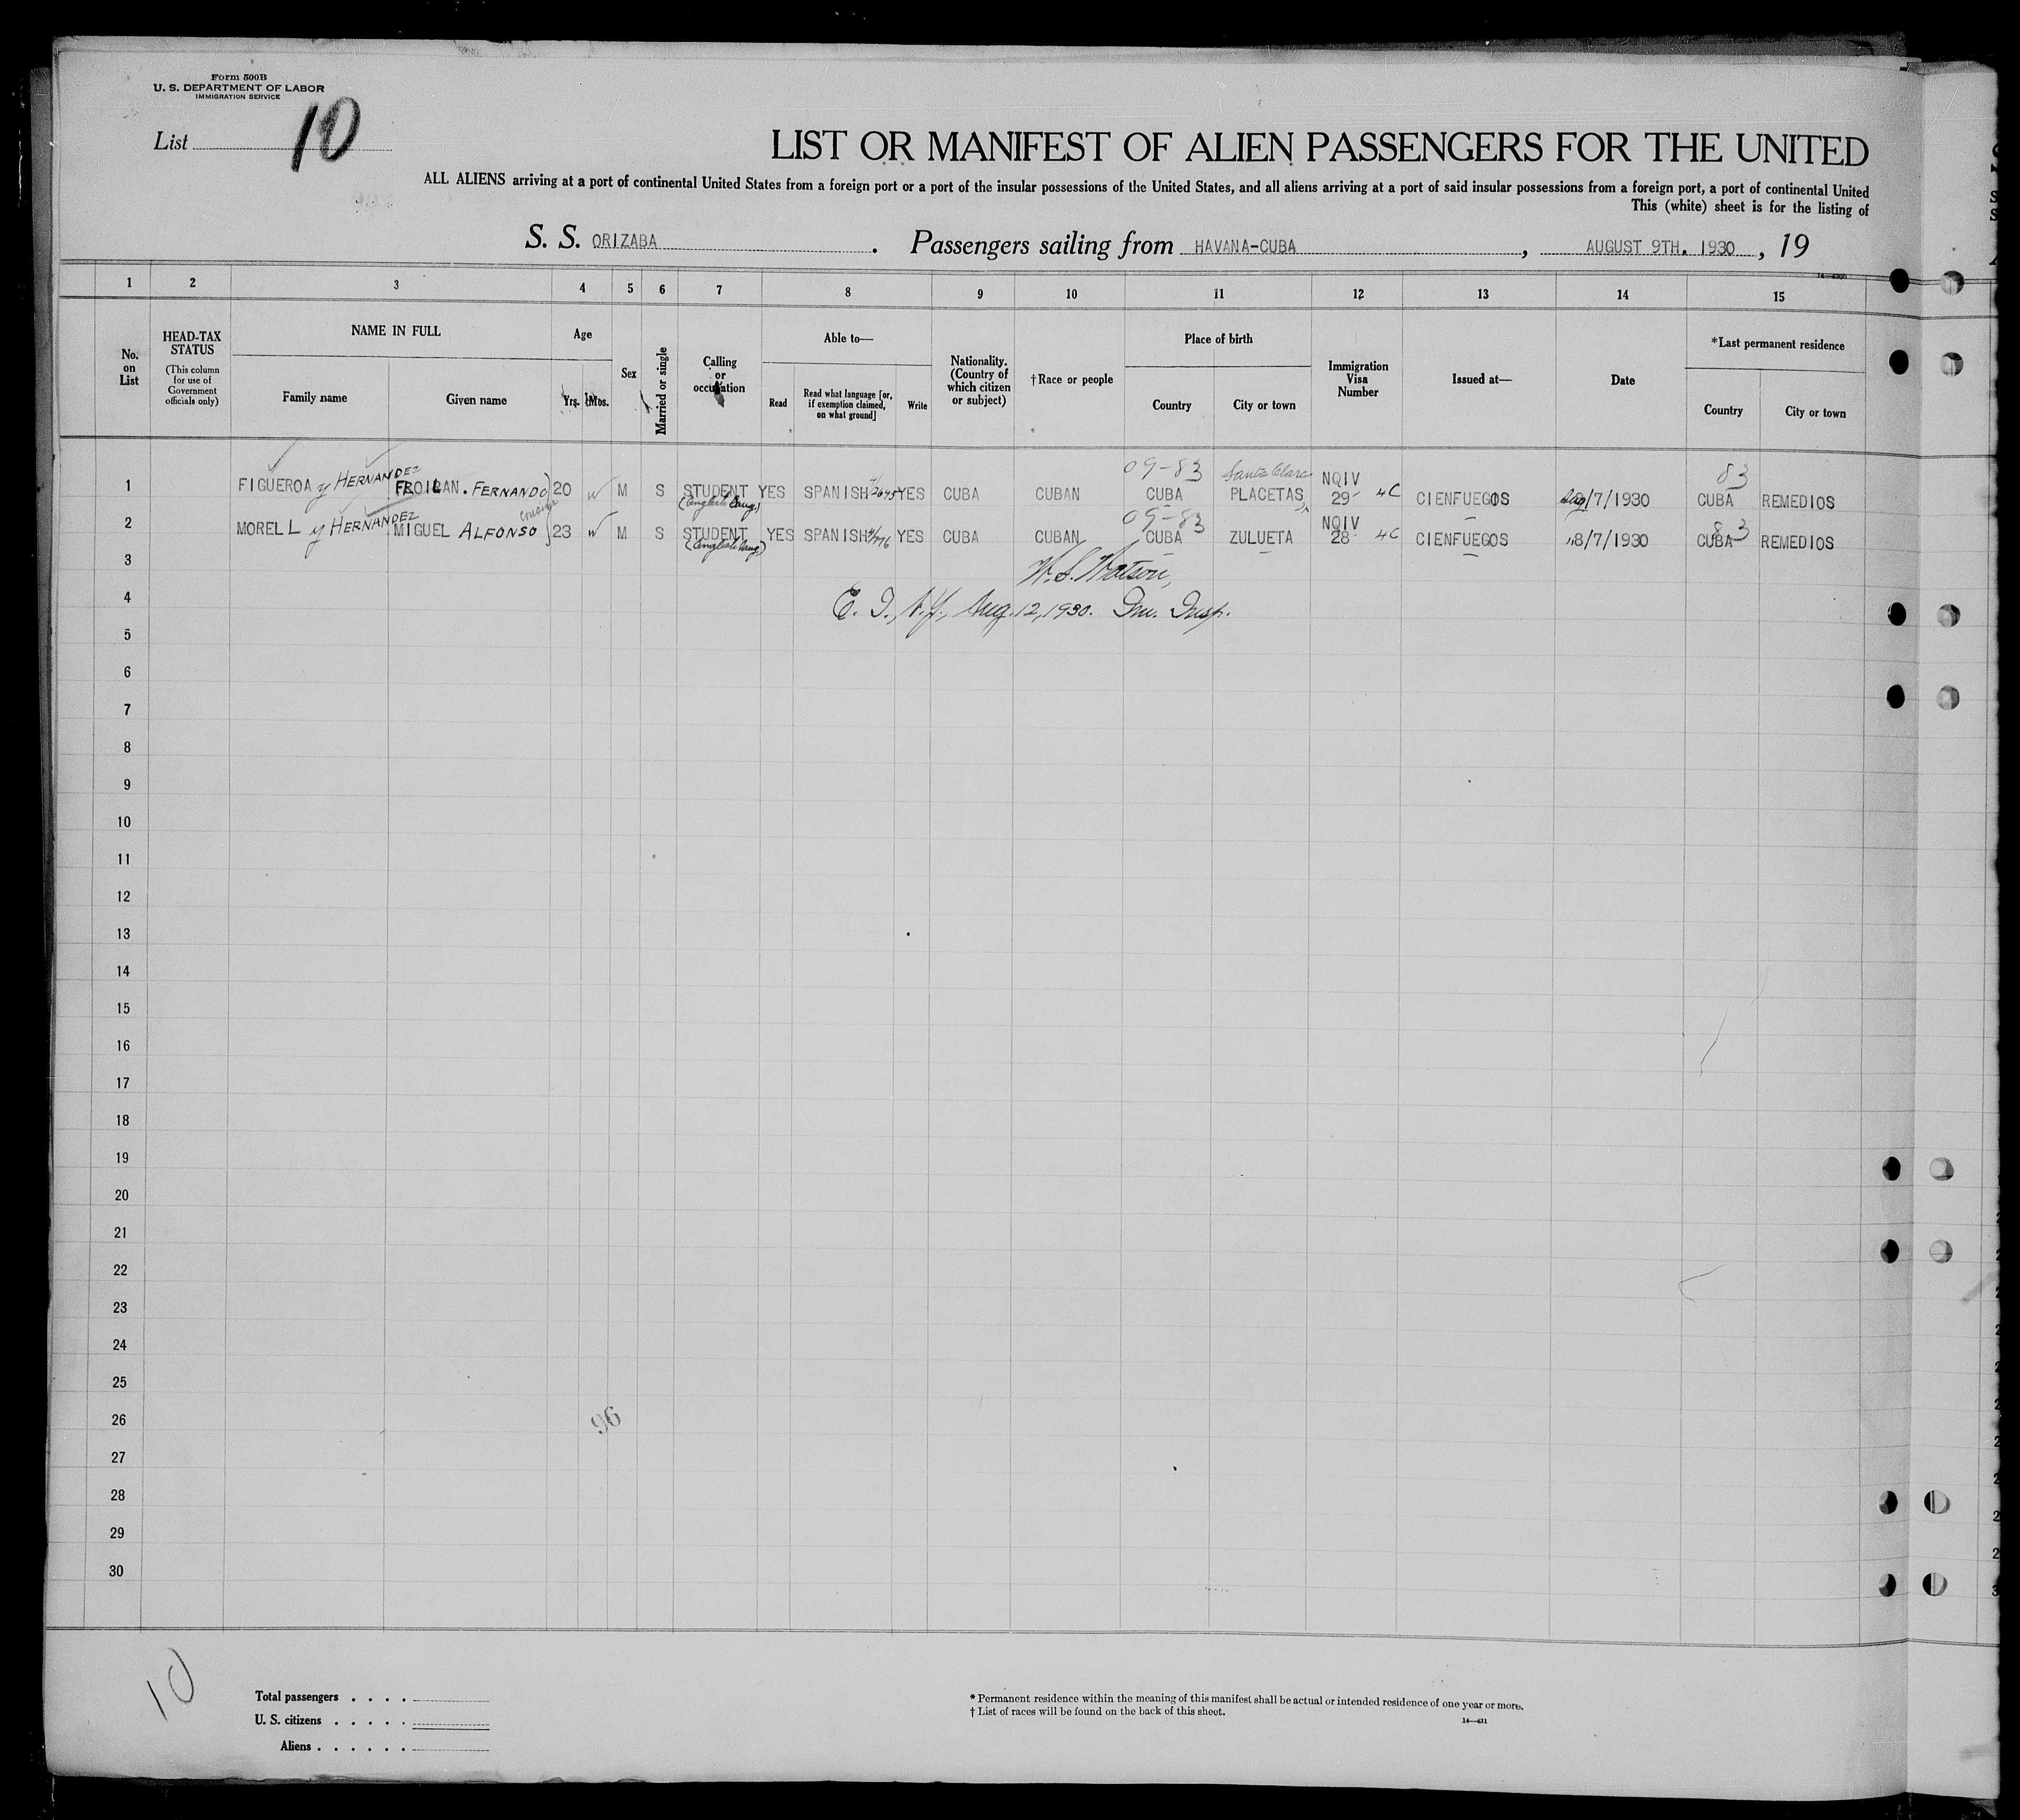 Form 500B
U. S. DEPARTMENT OF LABOR
IMMIGRATION SERVICE
List 10
LIST OR MANIFEST OF ALIEN PASSENGERS FOR THE UNITED
ALL ALIENS arriving at a port of continental United States from a foreign port or a port of the insular possessions of the United States, and all aliens arriving at a port of said insular possessions from a foreign port, a port of continental United
This (white) sheet is for the listing of
S. S. ORIZABA. Passengers sailing from HAVANA-CUBA, AUGUST 9TH. 1930, 19
1 2 3 4 5 6 7 8 9 10 11 12 13 14 15
No. on List
HEAD-TAX STATUS
(This column for use of Government officials only)
NAME IN FULL
Family name Given name
Age
Yrs. Mos.
Sex
Married or single
Calling or occupation
Able to—
Read
Read what language [or, if exemption claimed, on what ground]
Write
Nationality. (Country of which citizen or subject)
†Race or people
Place of birth
Country City or town
Immigration Visa Number
Issued at—
Date
*Last permanent residence
Country City or town
09-83 Santa Clara NQIV 83
1 FIGUEROA y HERNANDEZ FROILAN. FERNANDO 20 M S STUDENT YES SPANISH YES CUBA CUBAN CUBA PLACETAS 29 4C CIENFUEGOS /7/1930 CUBA REMEDIOS
(English Lang.)
cousin
09-83 NQIV 83
2 MORELL y HERNANDEZ MIGUEL ALFONSO 23 M S STUDENT YES SPANISH YES CUBA CUBAN CUBA ZULUETA 28 4C CIENFUEGOS 8/7/1930 CUBA REMEDIOS
(English Lang.)
3
W. S. Watson,
4
E. I., N.Y., Aug. 12, 1930. Imm. Insp.
5
6
7
8
9
10
11
12
13
14
15
16
17
18
19
20
21
22
23
24
25
26
96
27
28
29
30
10
Total passengers . . . .
U. S. citizens . . . . .
Aliens . . . . . .
* Permanent residence within the meaning of this manifest shall be actual or intended residence of one year or more.
† List of races will be found on the back of this sheet.
14—431